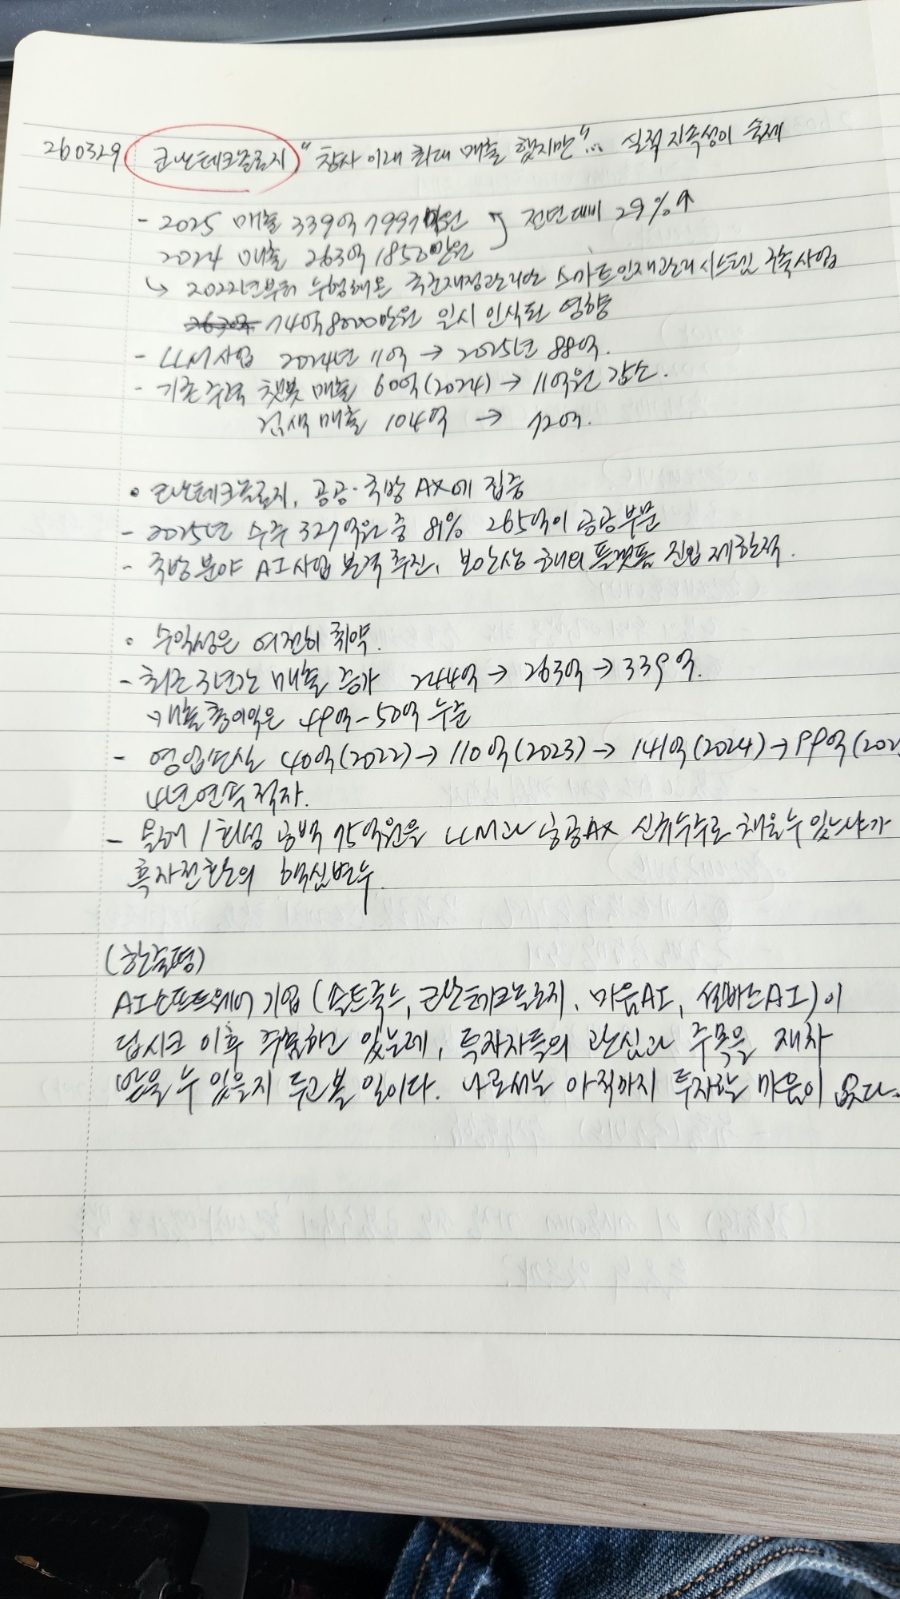 260329 코난테크놀로지, "창사 이래 최대 매출 했지만"... 실적 지속성이 숙제
- 2025 매출 339억 7997만원 전년대비 29%↑
2024 매출 263억 1850만원
↳ 2022년부터 수행해온 국군재정관리단 스마트인재관리시스템 구축사업
74억8000만원 일시 인식된 영향
- LLM사업 2024년 11억 → 2025년 88억.
- 기존 주력 챗봇 매출 60억(2024) → 11억원 감소.
검색 매출 104억 → 72억.
• 코난테크놀로지, 공공·국방 AX에 집중
- 2025년 수주 327억원 중 81% 265억이 공공부문
- 국방 분야 AI사업 본격 추진, 보안상 해외 플랫폼 진입 제한적.
• 수익성은 여전히 취약.
- 최근 3년간 매출 증가 244억 → 263억 → 339억.
매출총이익은 49억-50억 수준
- 영업손실 40억(2022) → 110억(2023) → 141억(2024) → 99억(202
4년 연속 적자.
- 올해 1회성 공백 75억원을 LLM과 공공AX 신규수주로 채울 수 있느냐가
흑자전환의 핵심변수.
(한줄평)
AI소프트웨어 기업 (솔트룩스, 코난테크놀로지, 마음AI, 셀바스AI)이
딥시크 이후 주춤하고 있는데, 투자자들의 관심과 주목을 재차
받을 수 있을지 두고볼 일이다. 나로서는 아직까지 투자할 마음이 없다.